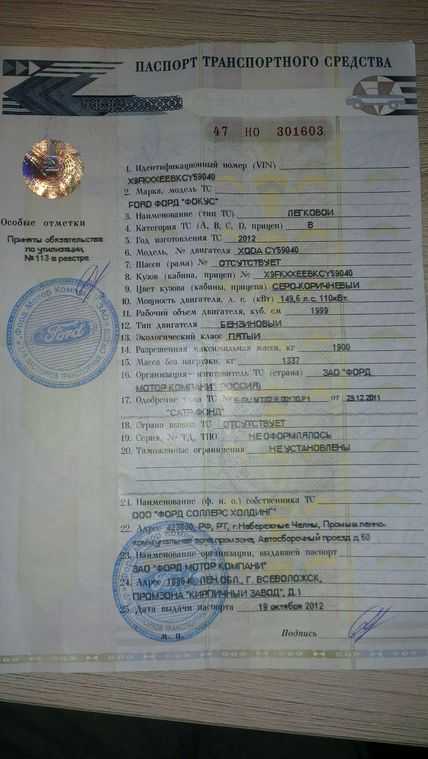 ПАСПОРТ ТРАНСПОРТНОГО СРЕДСТВА
47 НО 301603
1. Идентификационный номер (VIN)
X9FKXXEEBKCY59040
2. Марка, модель ТС
FORD ФОРД "ФОКУС"
3. Наименование (тип ТС) ЛЕГКОВОЙ
4. Категория ТС (А, В, С, D, прицеп) В
5. Год изготовления ТС 2012
6. Модель, № двигателя XQDA CY59040
7. Шасси (рама) № ОТСУТСТВУЕТ
8. Кузов (кабина, прицеп) № X9FKXXEEBKCY59040
9. Цвет кузова (кабины, прицепа) СЕРО-КОРИЧНЕВЫЙ
10. Мощность двигателя, л. с. (кВт) 149,6 л.с. 110кВт
11. Рабочий объем двигателя, куб. см 1999
12. Тип двигателя БЕНЗИНОВЫЙ
13. Экологический класс ПЯТЫЙ
14. Разрешенная максимальная масса, кг 1900
15. Масса без нагрузки, кг 1337
16. Организация - изготовитель ТС (страна) ЗАО "ФОРД
МОТОР КОМПАНИ" (РОССИЯ)
17. Одобрение типа ТС № от 29.12.2011
"САТР-ФОНД"
18. Страна вывоза ТС ОТСУТСТВУЕТ
19. Серия, № ТД, ТПО НЕ ОФОРМЛЯЛОСЬ
20. Таможенные ограничения НЕ УСТАНОВЛЕНЫ
21. Наименование (ф. и. о.) собственника ТС
ООО "ФОРД СОЛЛЕРС ХОЛДИНГ"
22. Адрес РФ, РТ, г.Набережные Челны, Промышленно-
коммунальная зона промзона, Автосборочный проезд д.60
23. Наименование организации, выдавшей паспорт
ЗАО "ФОРД МОТОР КОМПАНИ"
24. Адрес ЛЕН.ОБЛ., Г. ВСЕВОЛОЖСК,
ПРОМЗОНА "КИРПИЧНЫЙ ЗАВОД", Д.1
25. Дата выдачи паспорта 19 октября 2012
М. П. Подпись
Особые отметки
Приняты обязательства
по утилизации,
№ 113 в реестре
Ford